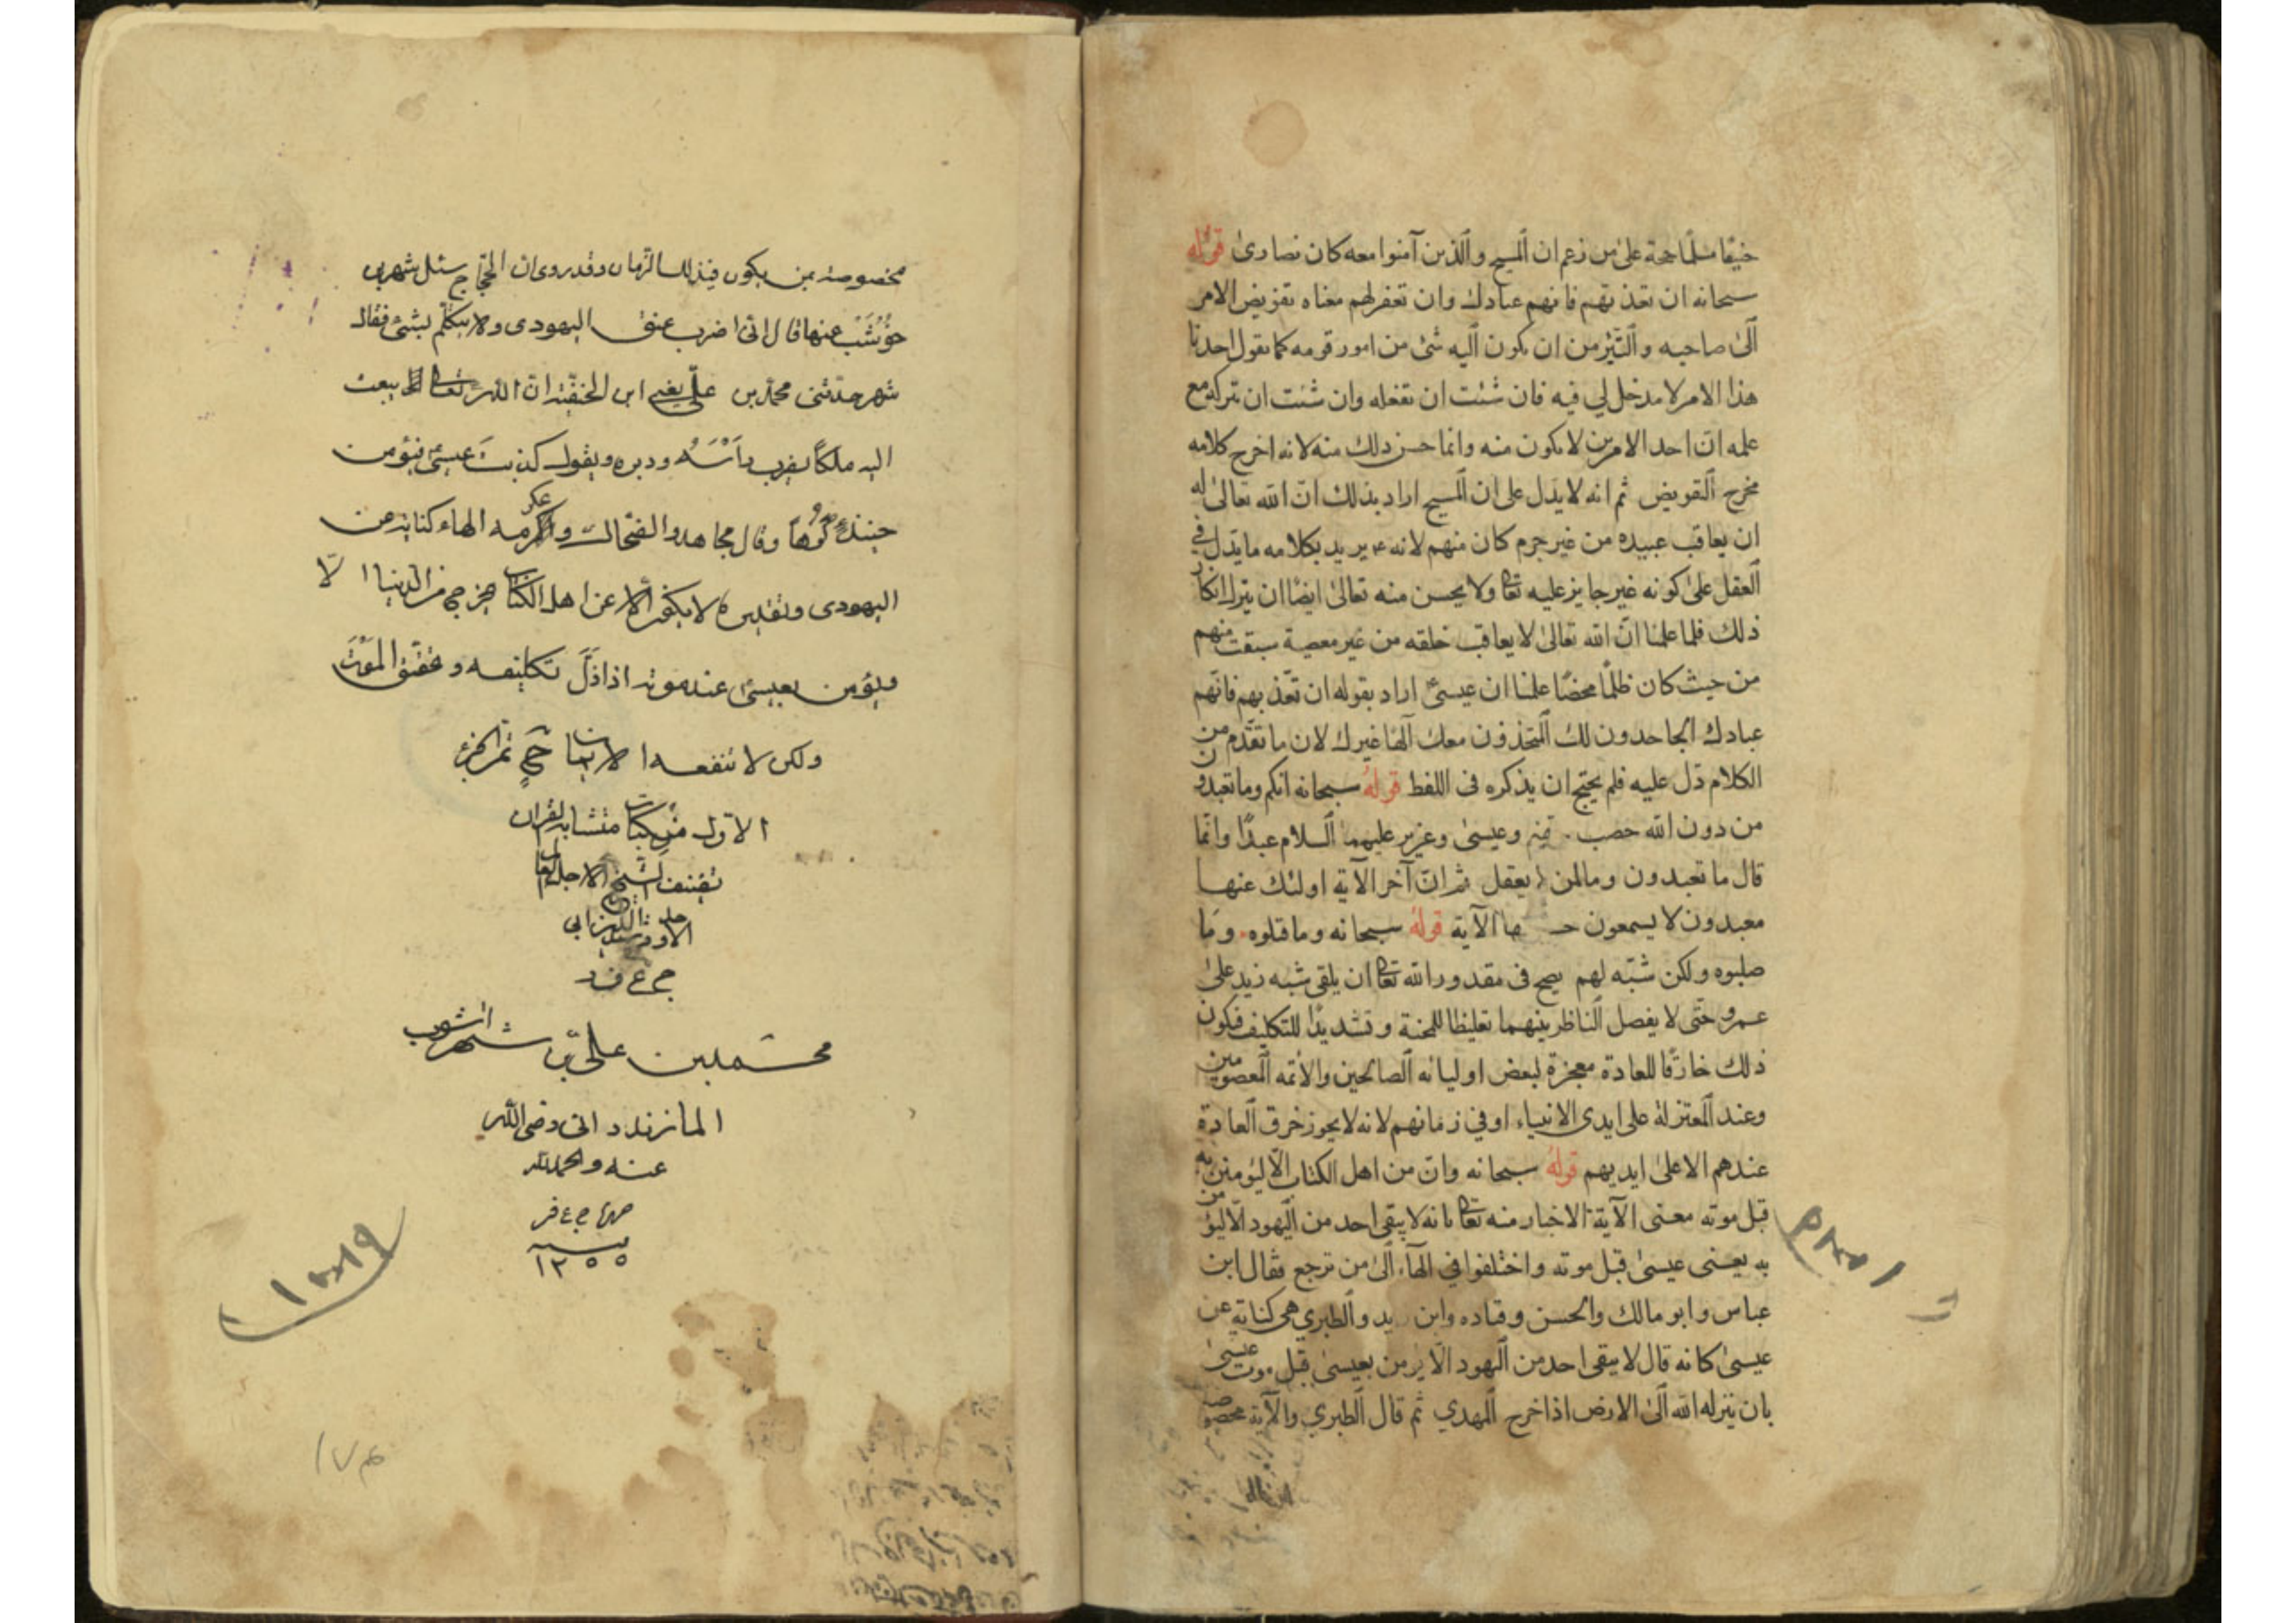 حنيفا مسلما حجة على من زعم ان المسيح والذين آمنوا معه كان نصارى قوله
سبحانه ان تعذبهم فانهم عبادك وان تغفر لهم معناه تفويض الامر
الى صاحبه والتبرّ من ان يكون اليه شئ من امور قومه كما يقول احدنا
هذا الامر لا مدخل لي فيه فان شئت ان تفعله وان شئت ان تتركه مع
علمه ان احد الامرين لا يكون منه وانما حسن ذلك منه لانه اخرج كلامه
مخرج التفويض ثم انه لا يدل على ان المسيح اراد بذلك انّ الله تعالى له
ان يعاقب عبيده من غير جرم كان منهم لانه يريد بكلامه ما يدل في
العقل على كونه غير جايز عليه تعا ولا يحسن منه تعالى ايضا ان يترك انكار
ذلك فلما علمنا انّ الله تعالى لا يعاقب خلقه من غير معصية سبقت منهم
من حيث كان ظلما محضا علمنا ان عيسى اراد بقوله ان تعذبهم فانهم
عبادك الجاحدون لك المتخذون معك آلها غيرك لان ما تقدّم من
الكلام دل عليه فلم يحتج ان يذكره فى اللفظ قوله سبحانه انكم وما تعبدون
من دون الله حصب وعيسى وعزير عليهما السلام عبدا وانما
قال ما تعبدون وما لمن لا يعقل ثم انّ آخر الآية اولئك عنها
مبعدون لا يسمعون الآية قوله سبحانه وما قتلوه وما
صلبوه ولكن شبّه لهم يصح فى مقدور الله تعا ان يلقى شبه زيد على
عمرو حتى لا يفصل الناظر بينهما تغليظا للمحنة وتشديدا للتكليف فيكون
ذلك خارقا للعادة معجزة لبعض اوليائه الصالحين والائمه المعصومين
وعند المعتزلة على ايدى الانبياء او في زمانهم لانه لا يجوز خرق العادة
عندهم الا على ايديهم قوله سبحانه وان من اهل الكتاب الّا ليؤمنن به
قبل موته معنى الآية الاخبار منه تعا بانه لا يبقى احد من اليهود الّا ليؤمنن
به يعنى عيسى قبل موته واختلفوا في الهآء الى من ترجع فقال ابن
عباس وابو مالك والحسن وقتاده وابن يد والطبري هى كناية عن
عيسى كانه قال لا يبقى احد من اليهود الّا يؤمن بعيسى قبل موت عيسى
بان ينزله الله الى الارض اذا خرج المهدي ثم قال الطبري والآية مخصوصة
١٥٢٩
مخصوصة بمن يكون فى ذلك الزمان وقد روى ان الحجّاج سئل شهر بن
حوشب عنها فقال انى اضرب عنق اليهودى ولا يتكلّم بشئ فقال
شهر حدّثنى محمّد بن علىّ يعنى ابن الحنفيّة انّ الله تعالى يبعث
اليه ملكاً يضرب رأسه ودبره ويقول كذبت عيسى فيؤمن
حينئذٍ كرهاً وقال مجاهد والضحّاك وعكرمه الهاء كناية عن
اليهودى وتقديره لا يكون احد من اهل الكتاب يخرج من الدنيا الّا
ويؤمن بعيسى عند موته اذا ذلّ تكليفه وتحقّق الموت
ولكن لا تنفعه الايمان ح تم الجزء
الاوّل من كتاب متشابه القران
تصنيف الشيخ الاجل
محمّد بن علىّ بن شهراشوب
المازندرانى رضى الله
عنه والحمد لله
١٢٥٥
١٥٢٩